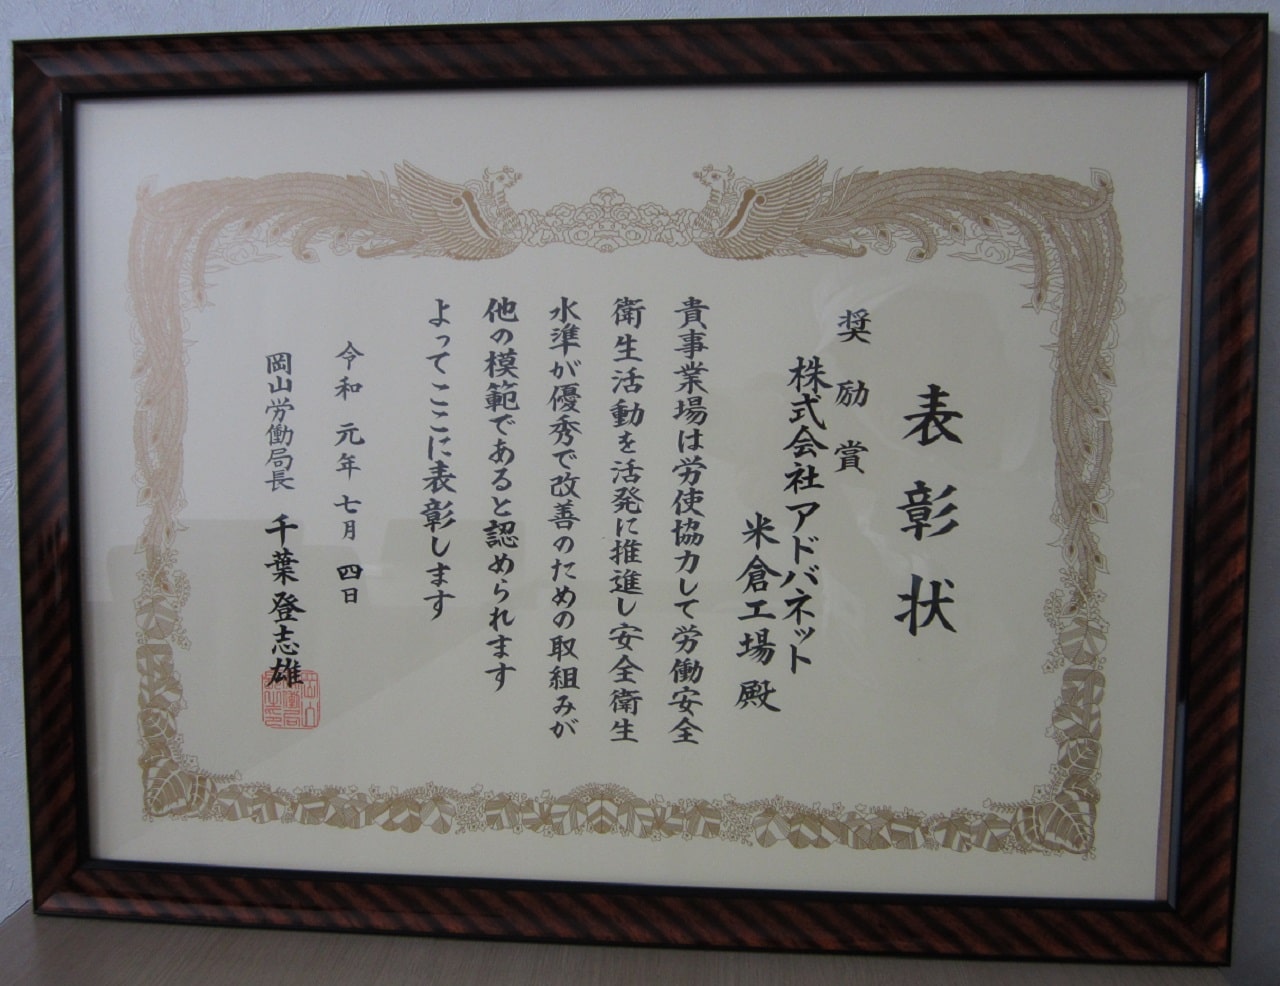 表彰状
奨励賞
株式会社アドバネット
米倉工場殿
貴事業場は労使協力して労働安全
衛生活動を活発に推進し安全衛生
水準が優秀で改善のための取組みが
他の模範であると認められます
よってここに表彰します
令和元年七月四日
岡山労働局長 千葉登志雄